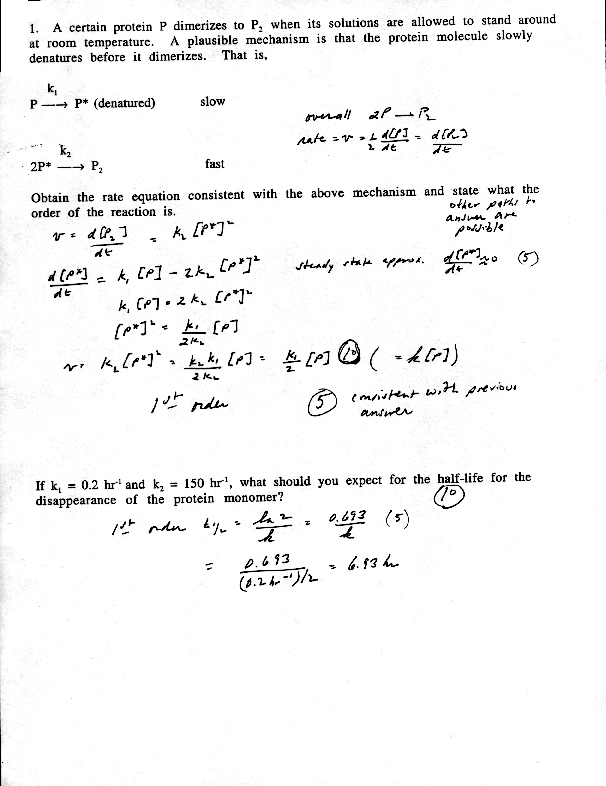 1. A certain protein P dimerizes to P₂ when its solutions are allowed to stand around
at room temperature. A plausible mechanism is that the protein molecule slowly
denatures before it dimerizes. That is,
k₁
P ⟶ P* (denatured) slow
overall 2P → P₂
rate = v = 1/2 d[P]/dt = d[P₂]/dt
k₂
2P* ⟶ P₂ fast
Obtain the rate equation consistent with the above mechanism and state what the
order of the reaction is.
other paths to
answer are
possible
v = d[P₂]/dt = k₂ [P*]²
d[P*]/dt = k₁ [P] - 2k₂ [P*]² steady state approx. d[P*]/dt ≈ 0 (5)
k₁ [P] = 2k₂ [P*]²
[P*]² = k₁/2k₂ [P]
v = k₂ [P*]² = k₂k₁/2k₂ [P] = k₁/2 [P] (10) ( = k[P])
1st order (5) consistent with previous
answer
If k₁ = 0.2 hr⁻¹ and k₂ = 150 hr⁻¹, what should you expect for the half-life for the
disappearance of the protein monomer?
(10)
1st order t½ = ln 2/k = 0.693/k (5)
= 0.693/(0.2 hr⁻¹)/2 = 6.93 hr